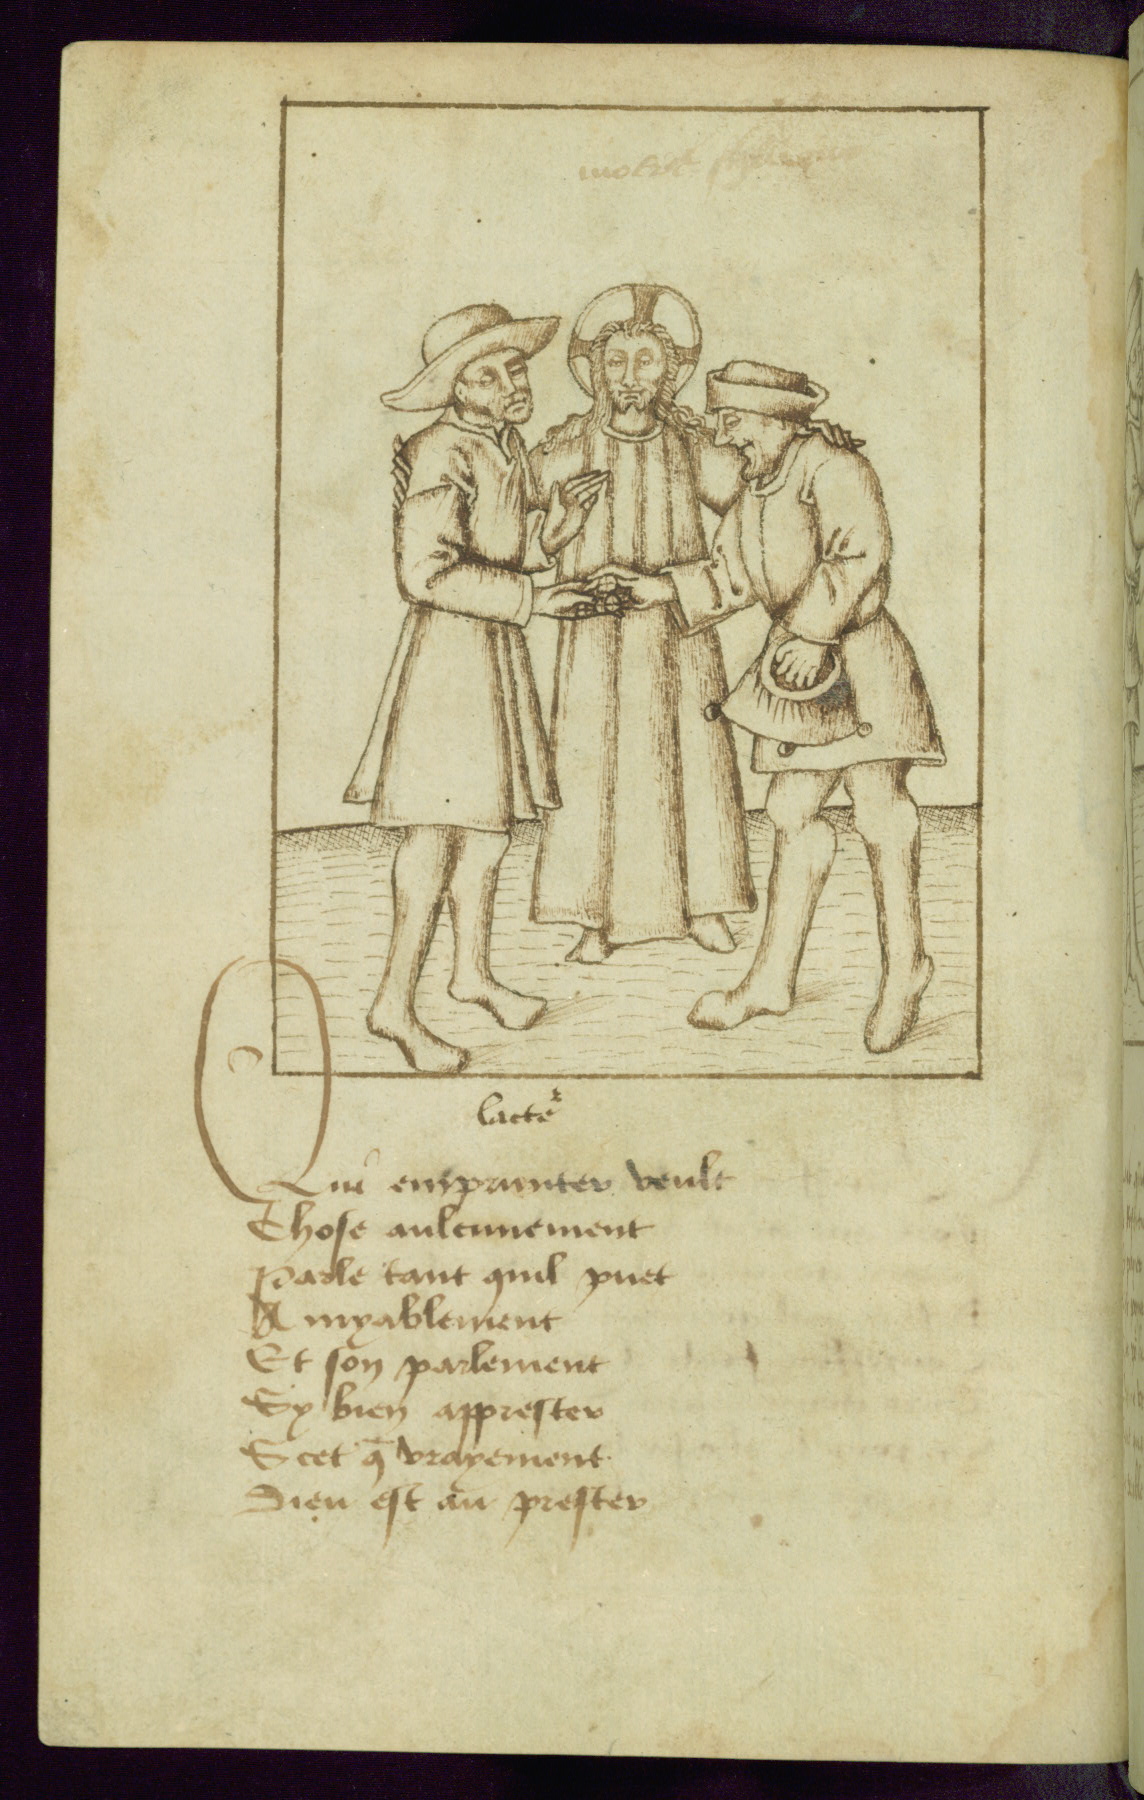 lacteʳ
Qui emprunter veult
Chose aulcunement
Parle tant quil puet
Amyablement
Et son parlement
Sy bien apprester
Scet q̄ vrayement
Dieu est au prester